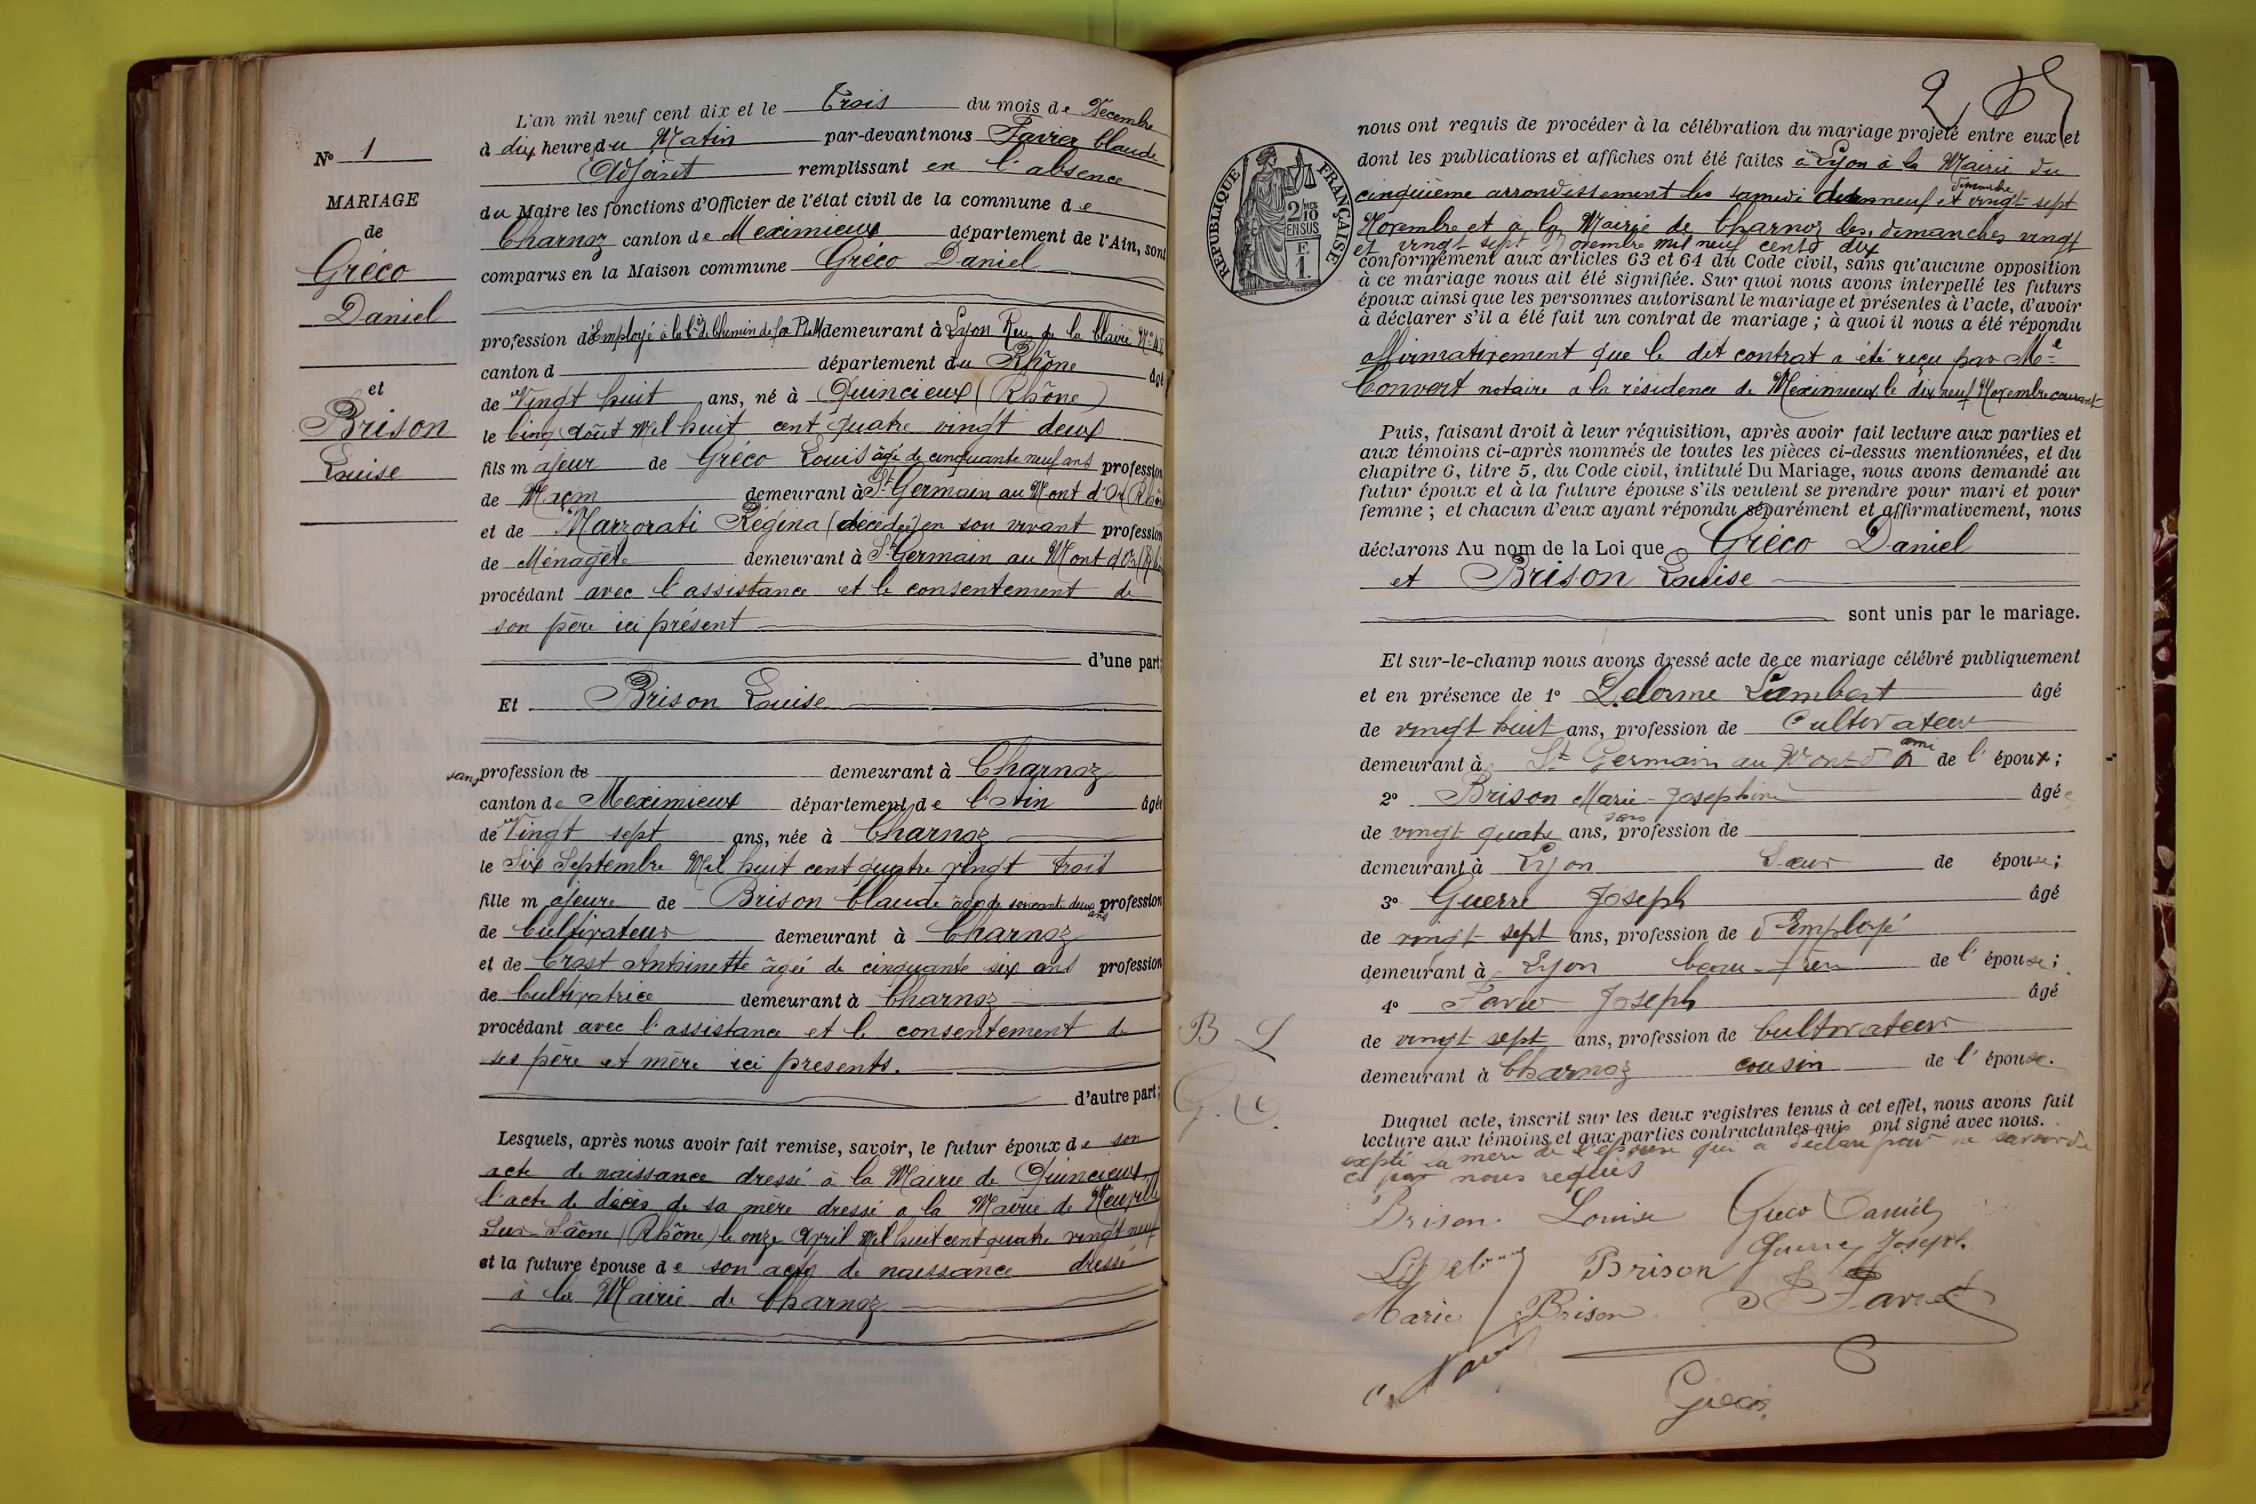 L'an mil neuf cent dix et le Trois du mois de Décembre
à dix heures du Matin par-devant nous Favier Claude
Adjoint remplissant en l'absence
du Maire les fonctions d'Officier de l'état civil de la commune de
Charnoz canton de Meximieux département de l'Ain, sont
comparus en la Maison commune Gréco Daniel
profession d'Employé à la Cie de Chemin de fer P.L.M demeurant à Lyon Rue de la Claire No
canton d département du Rhône âgé
de Vingt huit ans, né à Quincieux (Rhône)
le Cinq Août Mil huit cent quatre vingt deux
fils majeur de Gréco Louis âgé de cinquante neuf ans profession
de Maçon demeurant à St Germain au Mont d'Or (Rhône
et de Marzorati Régina (décédée) en son vivant profession
de Ménagère demeurant à St Germain au Mont d'Or (Rhône
procédant avec l'assistance et le consentement de
son père ici présent
d'une part;
Et Brison Louise
sans profession de demeurant à Charnoz
canton de Meximieux département de l'Ain âgée
de Vingt sept ans, née à Charnoz
le Six Septembre Mil huit cent quatre vingt trois
fille majeure de Brison Claude âgé de soixante deux ans profession
de Cultivateur demeurant à Charnoz
et de Crost Antoinette âgée de cinquante six ans profession
de Cultivatrice demeurant à Charnoz
procédant avec l'assistance et le consentement de
ses père et mère ici presents.
d'autre part;
Lesquels, après nous avoir fait remise, savoir, le futur époux de son
acte de naissance dressé à la Mairie de Quincieux
l'acte de décès de sa mère dressé a la Mairie de Neuville
Sur-Saône (Rhône) le onze Avril Mil huit cent quatre vingt neuf
et la future épouse de son acte de naissance dressé
à la Mairie de Charnoz
No 1
MARIAGE
de
Gréco
Daniel
et
Brison
Louise
2
nous ont requis de procéder à la célébration du mariage projeté entre eux et
dont les publications et affiches ont été faites à Lyon à la Mairie du
cinquième arrondissement les samedi dix neuf et dimanche vingt sept
Novembre et à la Mairie de Charnoz les dimanches vingt
et vingt sept Novembre mil neuf cent dix
conformément aux articles 63 et 64 du Code civil, sans qu'aucune opposition
à ce mariage nous ait été signifiée. Sur quoi nous avons interpellé les futurs
époux ainsi que les personnes autorisant le mariage et présentes à l'acte, d'avoir
à déclarer s'il a été fait un contrat de mariage ; à quoi il nous a été répondu
affirmativement que le dit contrat a été reçu par Me
Convert notaire a la résidence de Meximieux le dix neuf Novembre courant
Puis, faisant droit à leur réquisition, après avoir fait lecture aux parties et
aux témoins ci-après nommés de toutes les pièces ci-dessus mentionnées, et du
chapitre 6, titre 5, du Code civil, intitulé Du Mariage, nous avons demandé au
futur époux et à la future épouse s'ils veulent se prendre pour mari et pour
femme ; et chacun d'eux ayant répondu séparément et affirmativement, nous
déclarons Au nom de la Loi que Gréco Daniel
et Brison Louise
sont unis par le mariage.
Et sur-le-champ nous avons dressé acte de ce mariage célébré publiquement
et en présence de 1o Delorme Lambert âgé
de vingt huit ans, profession de Cultivateur
demeurant à St Germain au Mont d'Or ami de l'époux;
2o Brison Marie-Josephine âgée
de vingt quatre ans, sans profession de
demeurant à Lyon Sœur de épouse;
3o Guerre Joseph âgé
de vingt sept ans, profession de d'Employé
demeurant à Lyon beau-frère de l'épouse;
4o Favier Joseph âgé
de vingt sept ans, profession de Cultivateur
demeurant à Charnoz cousin de l'épouse.
Duquel acte, inscrit sur les deux registres tenus à cet effet, nous avons fait
lecture aux témoins et aux parties contractantes qui ont signé avec nous.
expté la mère de l'épouse qui a déclaré pour ne savoir de
ce par nous requis
Brison Louise Gréco Daniel
Brison Guerre Joseph
Marie Brison J Favier
Gréco
B L
G. D
RÉPUBLIQUE FRANÇAISE
2/10 EN SUS
F. 1.